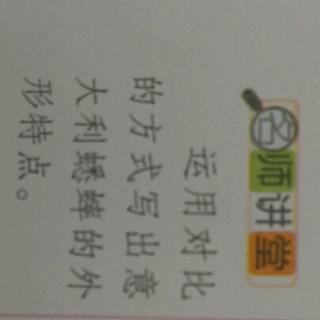 名师讲堂
运用对比
的方式写出意
大利蟋蟀的外
形特点。